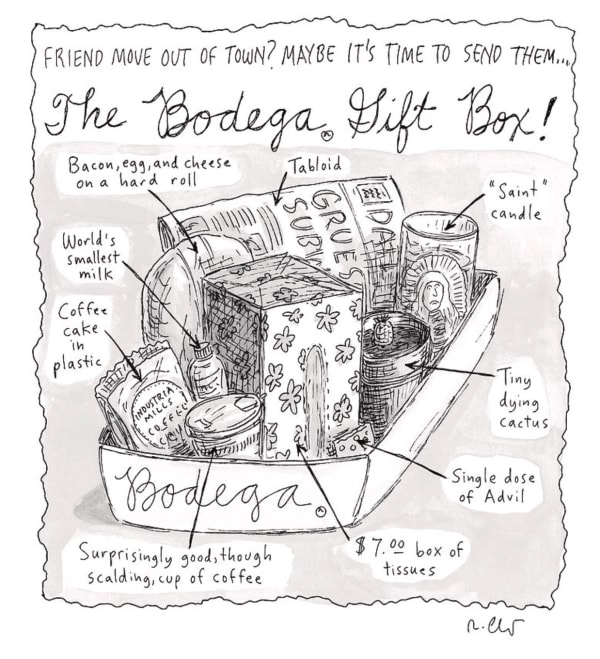 FRIEND MOVE OUT OF TOWN? MAYBE IT'S TIME TO SEND THEM...
The Bodega® Gift Box!
Bacon, egg, and cheese
on a hard roll
Tabloid
"Saint"
candle
World's
smallest
milk
Coffee
cake
in
plastic
GRUES
SUBW
DAI
INDUSTRIA
MILLS
COFFEE
CAK
Tiny
dying
cactus
Bodega®
Single dose
of Advil
Surprisingly good, though
scalding, cup of coffee
$7.00 box of
tissues